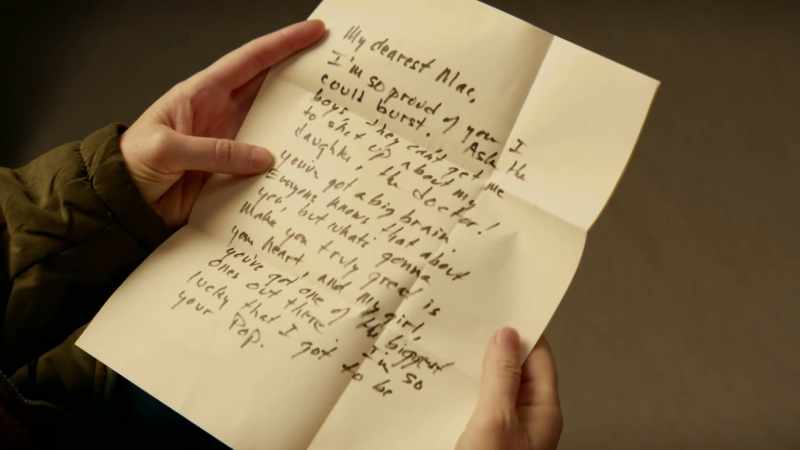 My dearest Mae,
I'm so proud of you I
could burst. Ask the
boys, they can't get me
to shut up about my
daughter, the doctor!
you've got a big brain.
Everyone knows that about
you, but whats gonna
Make you truly great is
you heart, and my girl,
you've got one of the biggest
ones out there. I'm so
lucky that I got to be
your Pop.